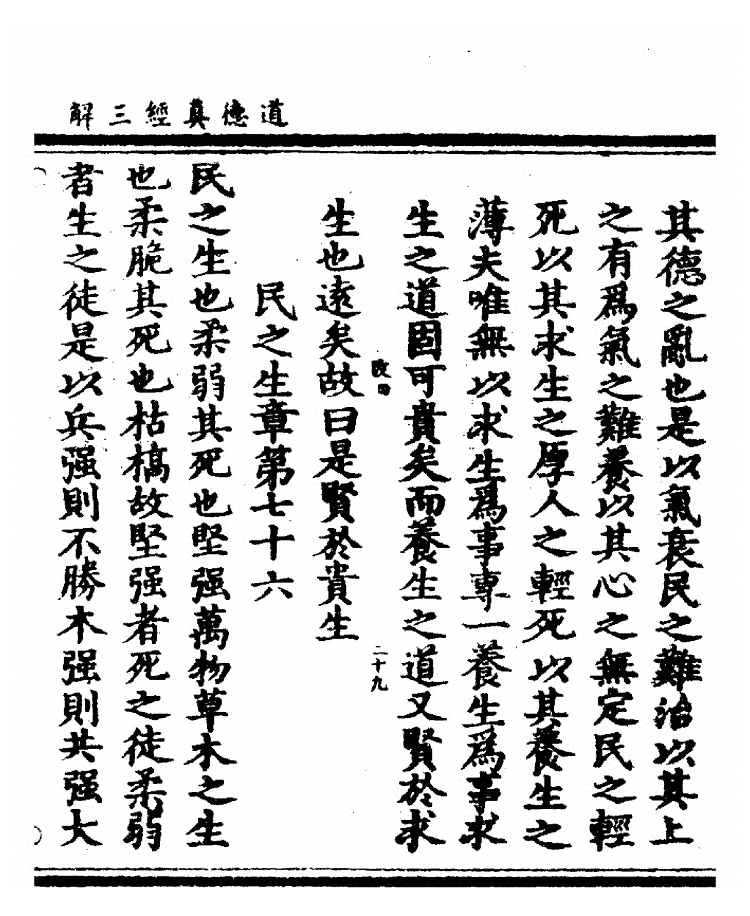 道德真經三解
其德之亂也是以氣衰民之難治以其上
之有爲氣之難養以其心之無定民之輕
死以其求生之厚人之輕死以其養生之
薄夫唯無以求生爲事專一養生爲事求
生之道固可貴矣而養生之道又賢於求
改四
二十九
生也遠矣故曰是賢於貴生
民之生章第七十六
民之生也柔弱其死也堅强萬物草木之生
也柔脆其死也枯槁故堅强者死之徒柔弱
者生之徒是以兵强則不勝木强則共强大